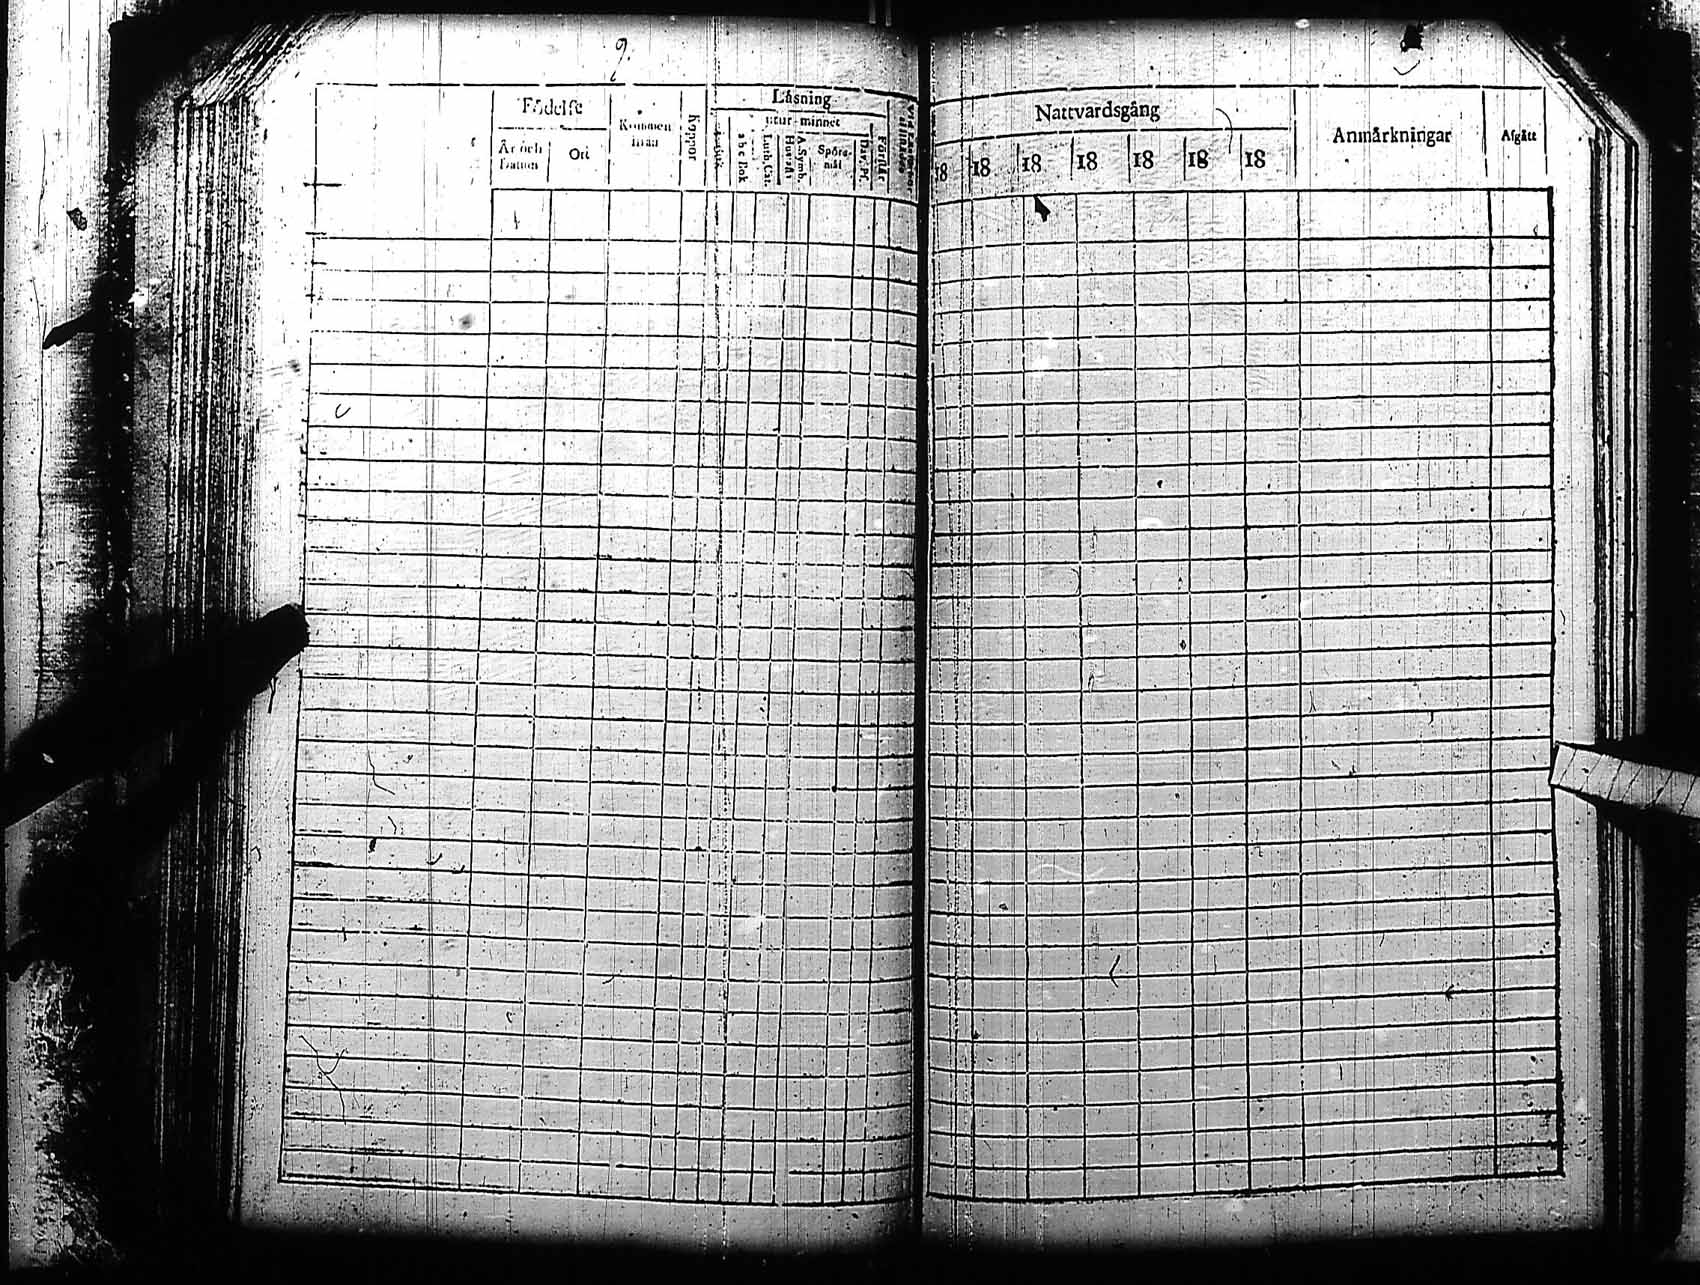 9.
Födelse
År och
Datum
Ort
Kommen
ifrån
Koppor
Läsning
utur minnet
abc Bok
Luth. Cat.
A. Symb.
Hustafl.
Spörs-
mål
Dav. Ps.
Förstår
Nattvardsgång
18 18 18 18 18 18 18
Anmärkningar
Afgått